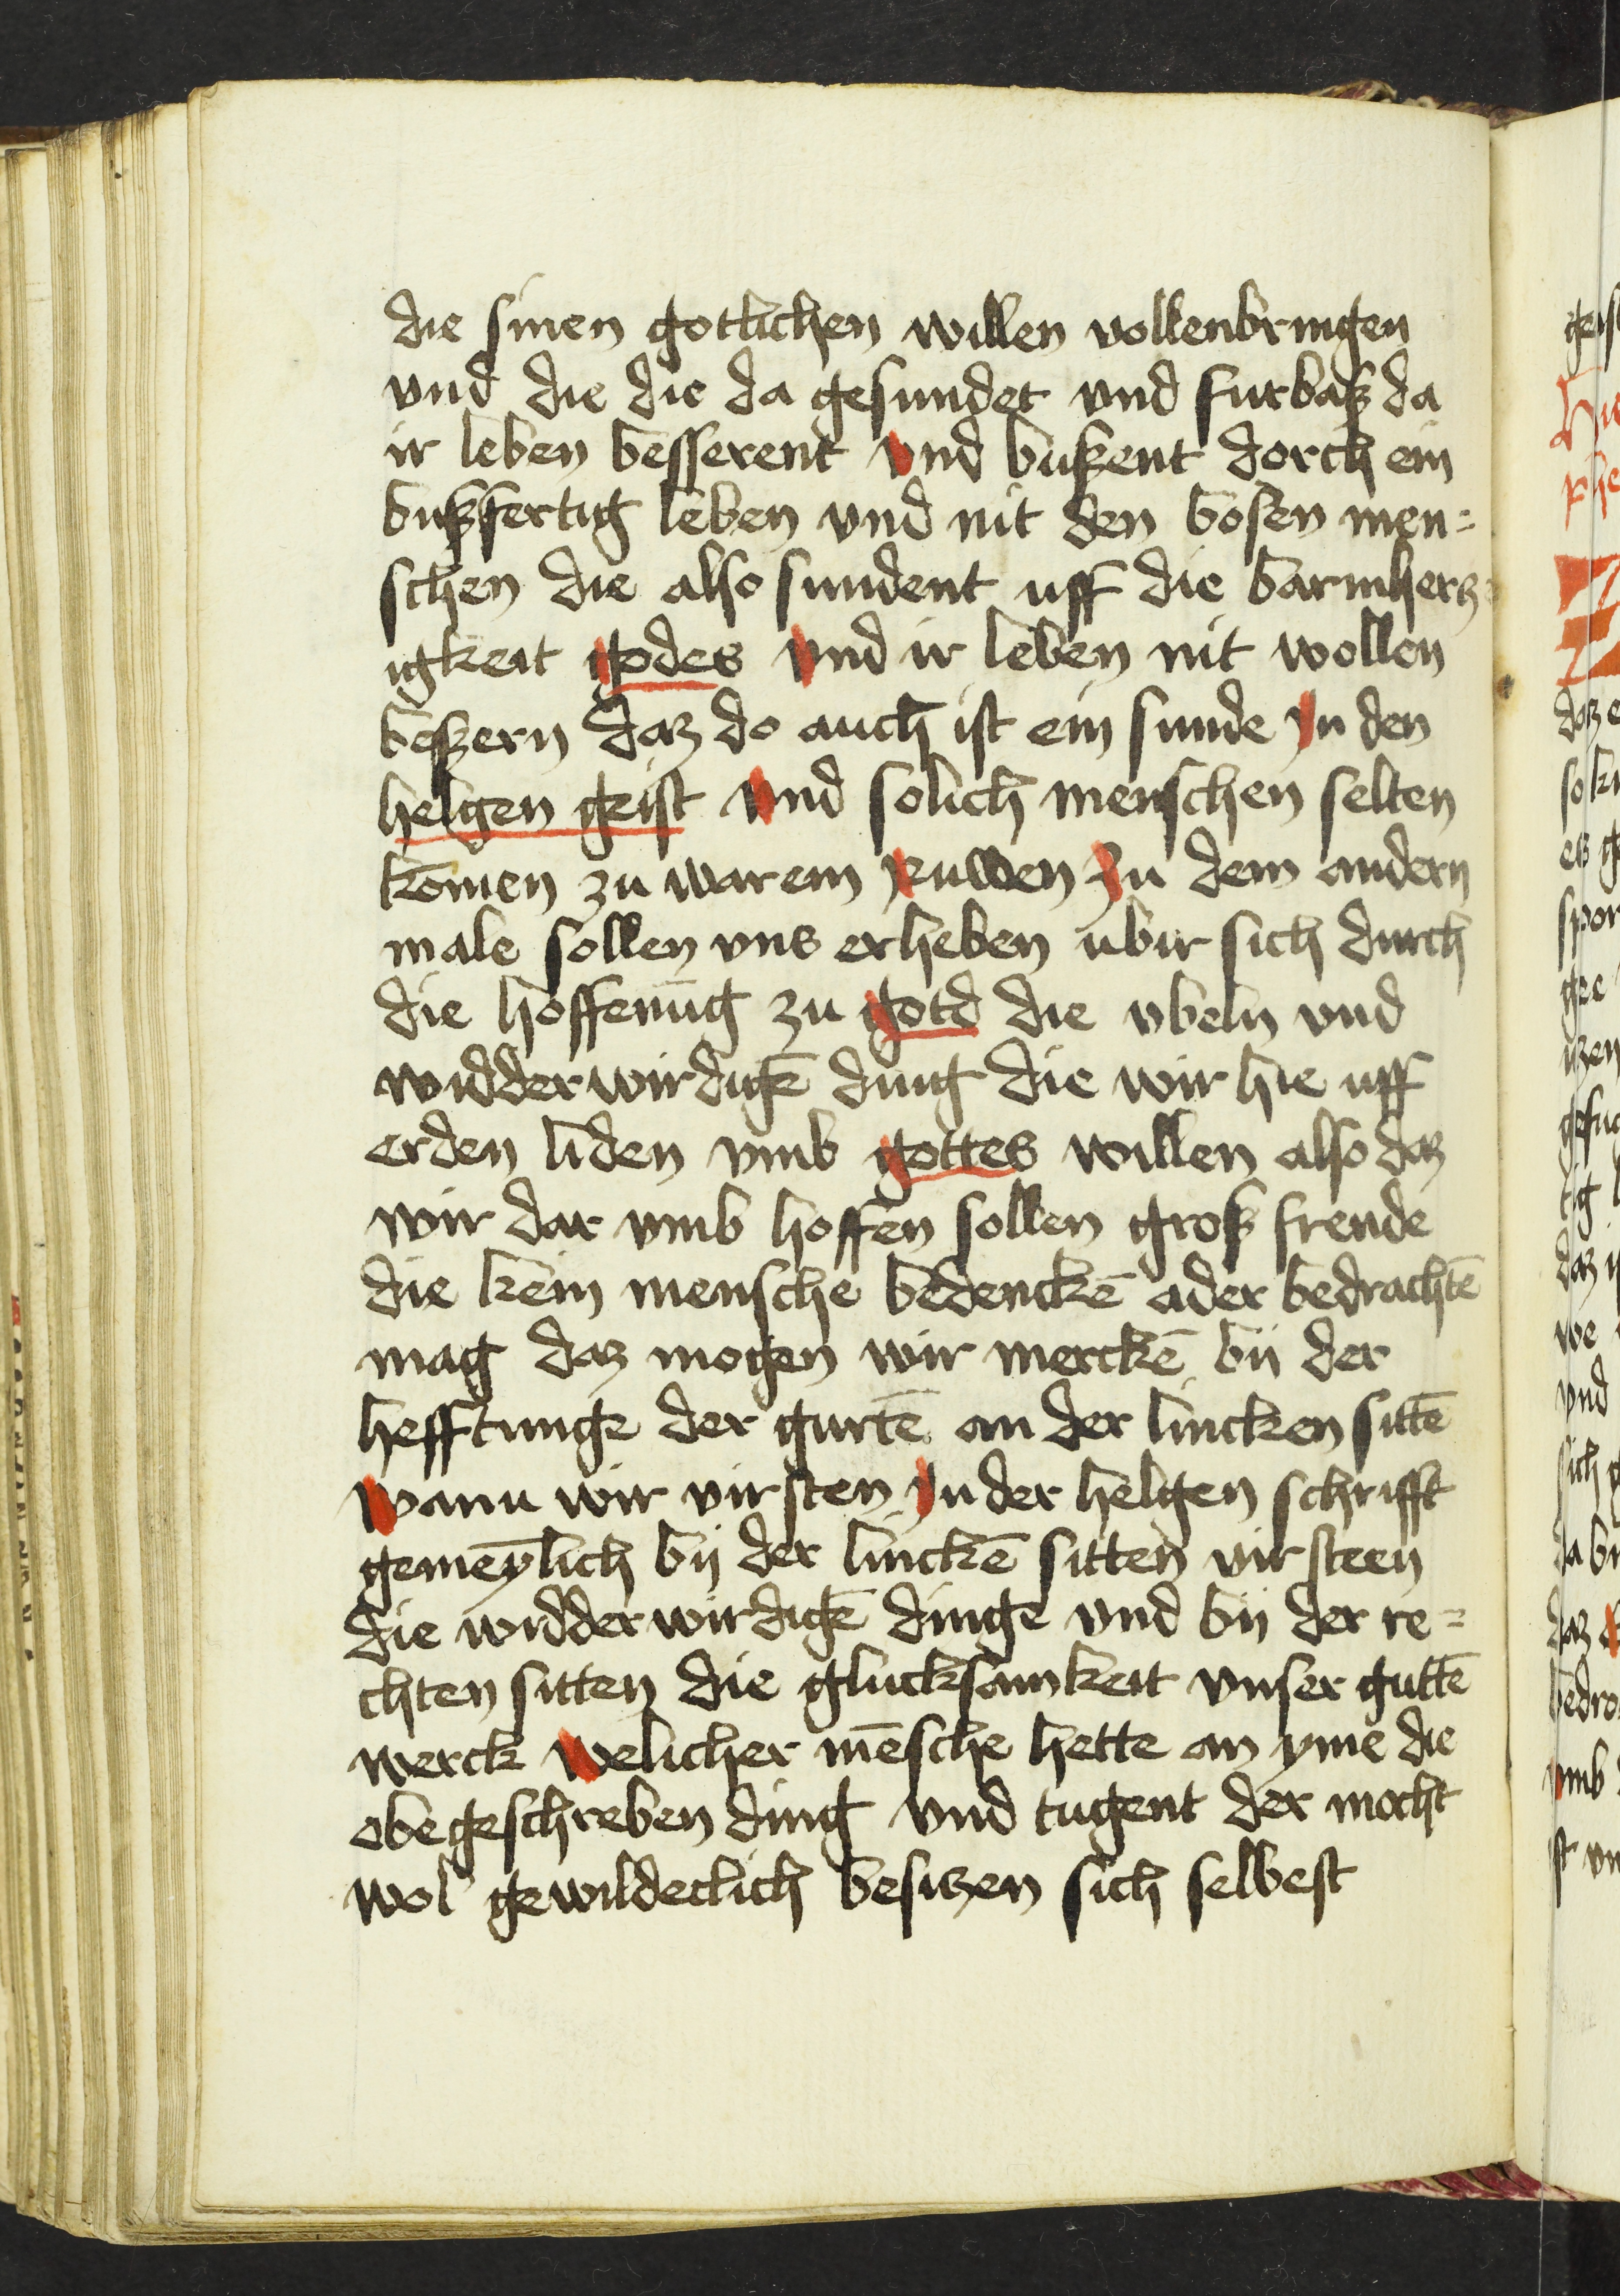 die sinen gotlichen willen vollenbringen
vnd die die da gesundet vnd furbaß da
ir leben besserent vnd bußent dorch ein
bußfertig leben vnd nit den bosen men=
schen die also sundent uff die barmhercz=
igkeit godes vnd ir leben nit wollen
beßern daz do auch ist ein sunde Jn den
helgen geist vnd solich menschen selten
komen zu warem ruwen Zu dem andern
male sollen vns erheben ubir sich durch
die hoffenūg zu gotd die vbeln vnd
widderwirdigē ding die wir hie uff
erden liden vmb gottes willen also daz
wir dar vmb hoffen sollen groß freude
die kein mensche bedenckē ader bedrachtē
mag daz mogen wir merckē bij der
hefftunge der gurtē an der lincken sittē
wann wir virsten Jn der helgen schrifft
gemeylich bij der linckē sitten virsteen
die widderwirdigē dinge vnd bij der re=
chten sitten die glucksamkeit vnser guttē
werck welicher mēsche hette an yme die
obegeschreben ding vnd tugent der mocht
wol gewildeclich besitzen sich selbest